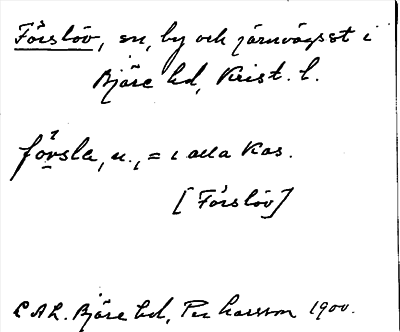 Förslöv, sn, by och järnvägsst i
Bjäre hd, Krist. l.
försla, n., = i alla kas.
[Förslöv]
C A L. Bjäre hd, Per Larsson 1900.